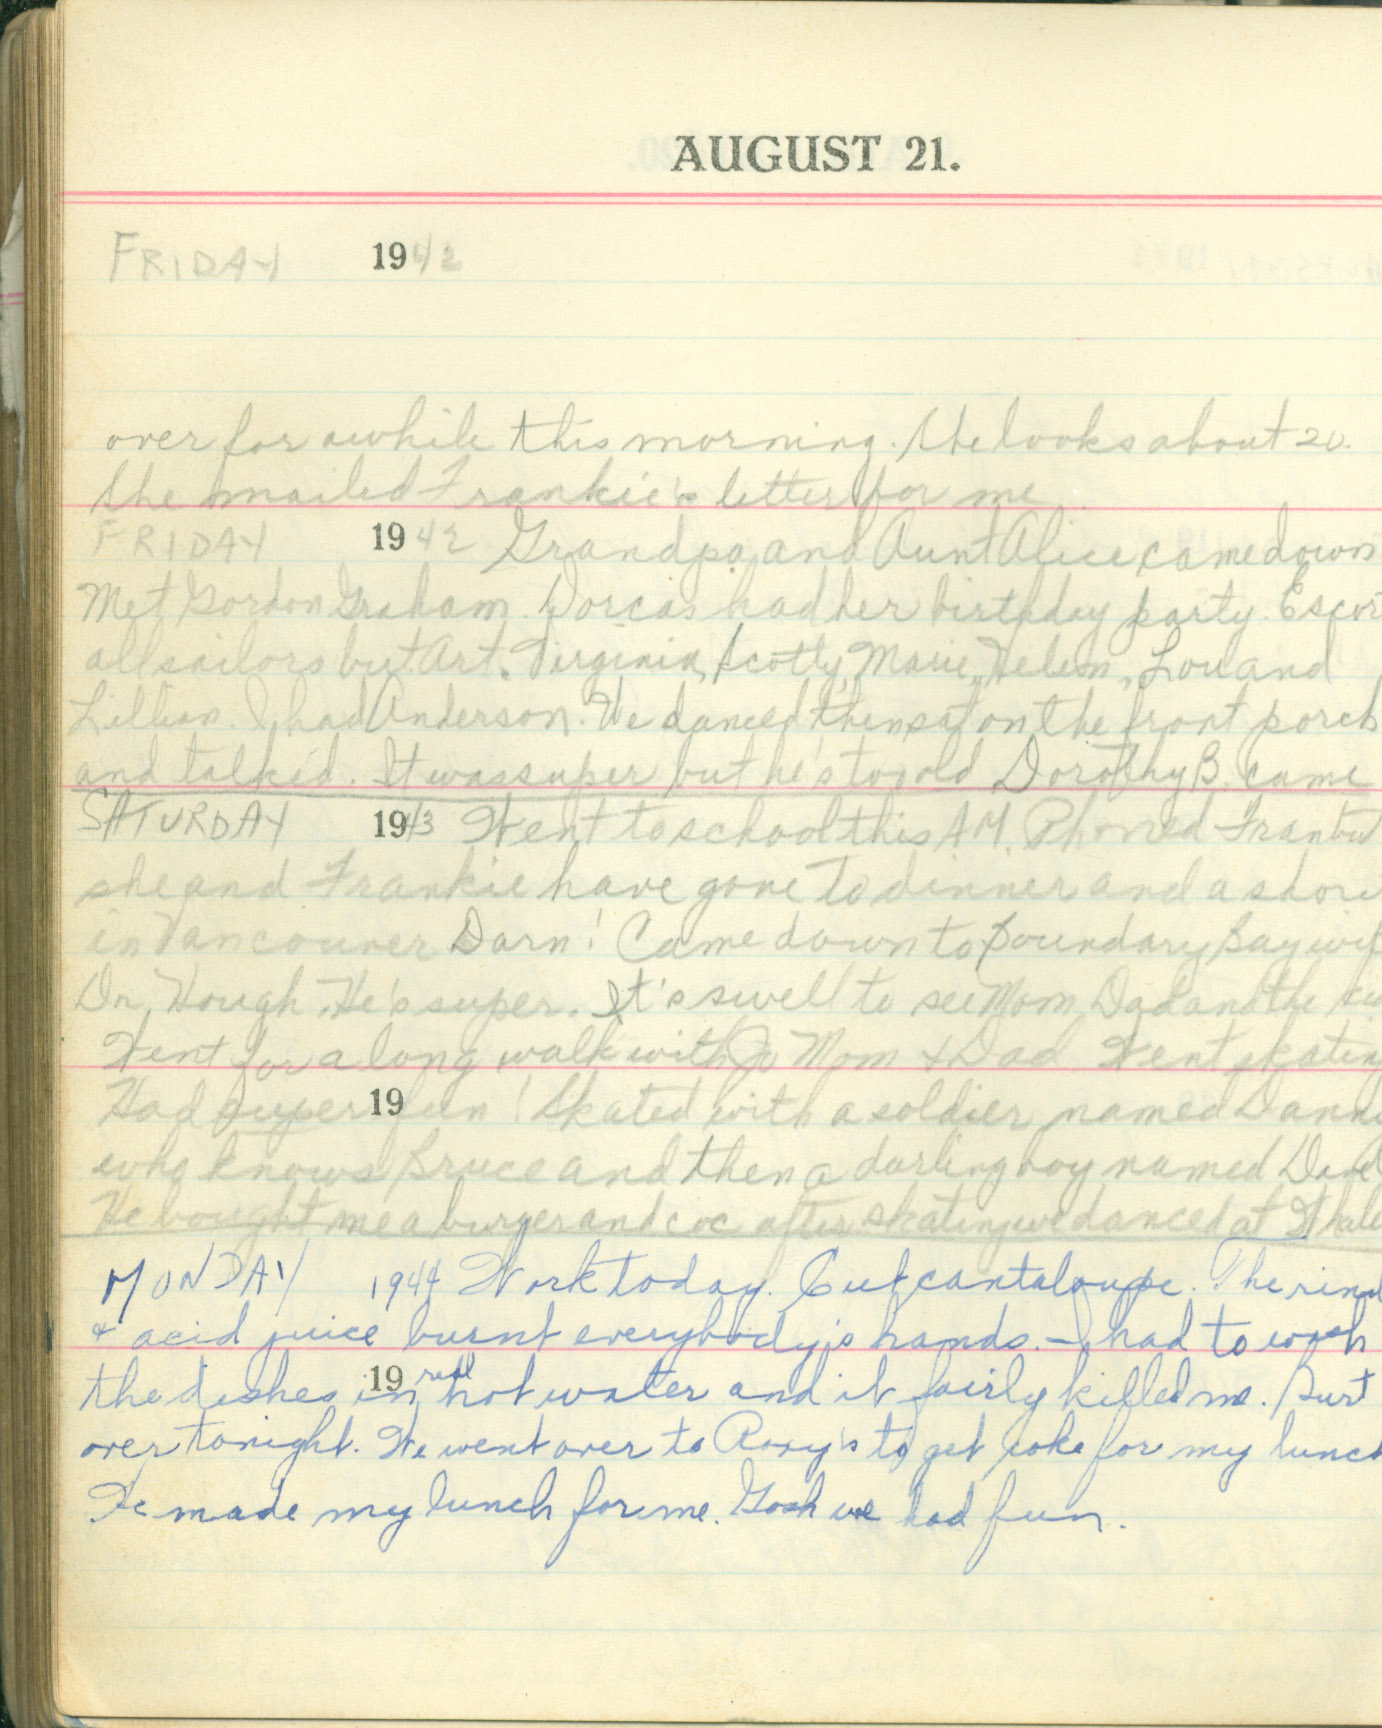 AUGUST 21.
FRIDAY 1942
over for awhile this morning. She looks about 20.
She mailed Frankie's letter for me
FRIDAY 1942 Grandpa and Aunt Alice came down
Met Gordon Graham. Dorcas had her birthday party. Escor
all sailors but Art. Virginia, Scotty, Marie, Helen, Lou and
Lillian. I had Anderson. We danced, then sat on the front porch
and talked. It was super but he's too old Dorothy B. came
SATURDAY 1943 Went to school this AM. Phoned Fran but
she and Frankie have gone to dinner and a show
in Vancouver Darn! Came down to Boundary Bay with
Dr. Hough. He's super. It's swell to see Mom, Dad and the
Went for a long walk with Jo Mom & Dad Went skating
Had super fun! Skated with a soldier named
19
who knows Bruce and then a darling boy named
He bought me a burger and coc after skating we danced at
MONDAY 1944 Work today. Cut cantaloupe. The rind
& acid juice burnt everybody's hands. - I had to wash
the dishes in real hot water and it fairly killed me. Burt
19
over tonight. We went over to Roxy's to get coke for my lunch
He made my lunch for me. Gosh we had fun.